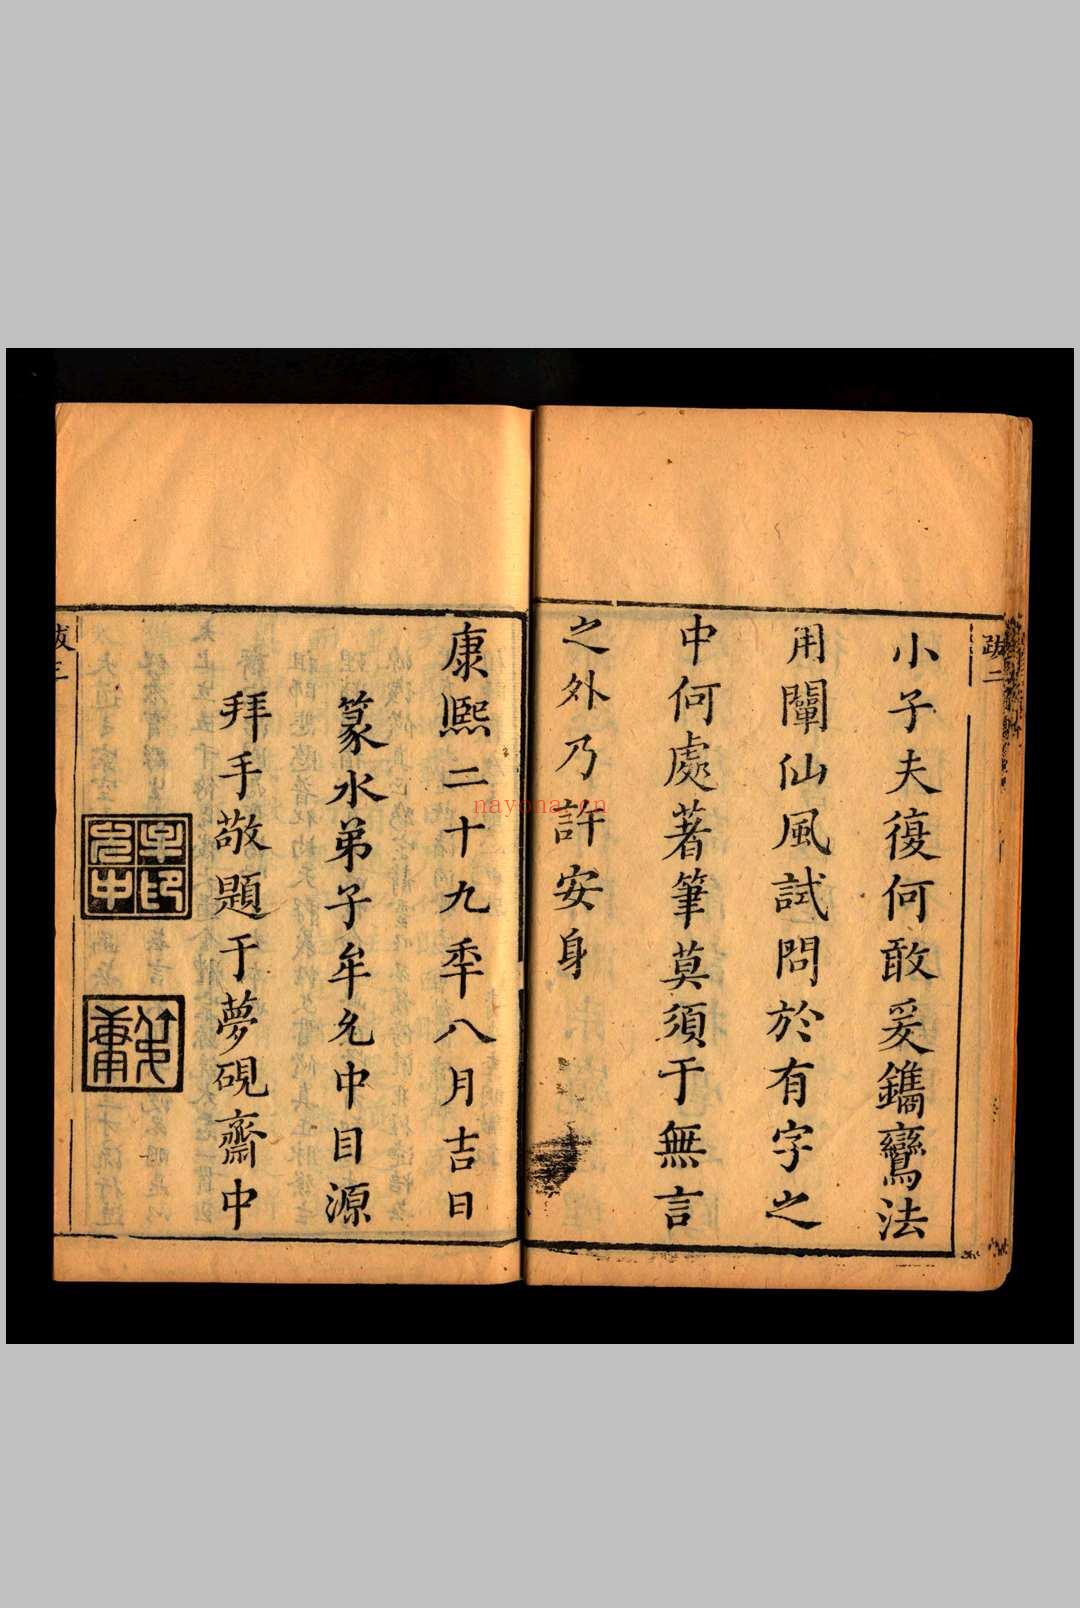 跋二
小子夫復何敢爰鐫鸞法
用闡仙風試問於有字之
中何處著筆莫須于無言
之外乃許安身
康熙二十九秊八月吉日
篆水弟子牟允中目源
拜手敬題于夢硯齋中
牟印允中
跋三
nayona.cn